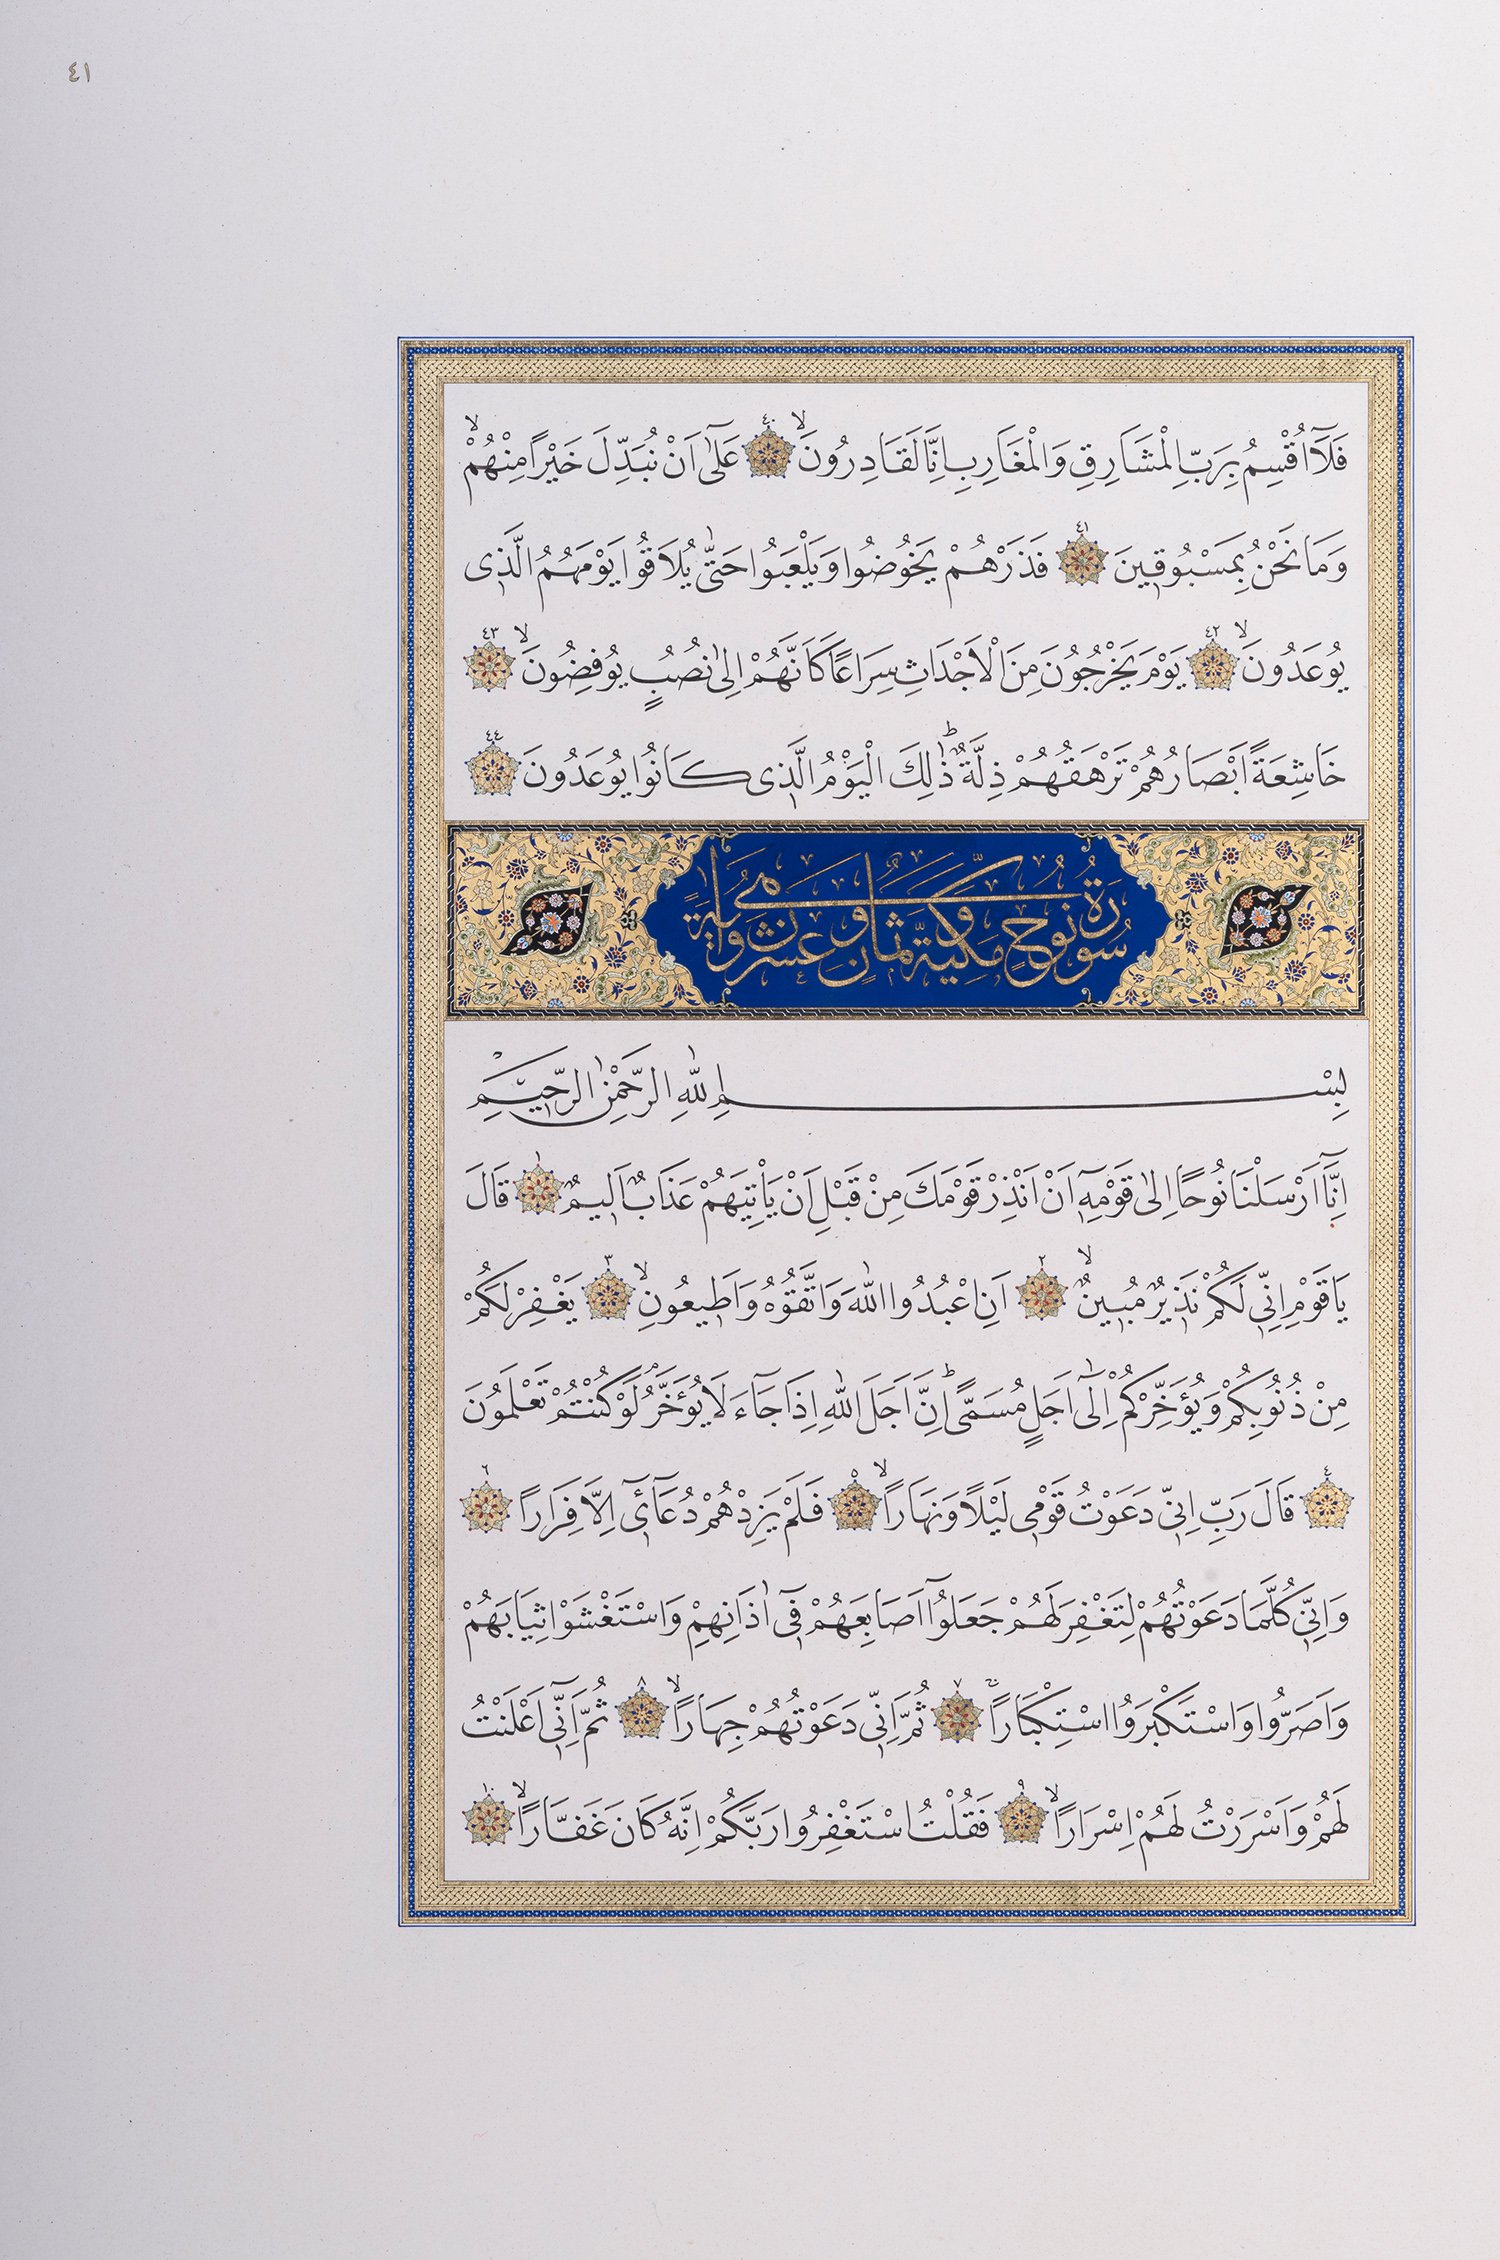 ٤١
فَلَآ اُقْسِمُ بِرَبِّ الْمَشَارِقِ وَالْمَغَارِبِ اِنَّا لَقَادِرُونَۙ ٤٠ عَلٰٓى اَنْ نُبَدِّلَ خَيْرًا مِنْهُمْۙ
وَمَا نَحْنُ بِمَسْبُوقٖينَ ٤١ فَذَرْهُمْ يَخُوضُوا وَيَلْعَبُوا حَتّٰى يُلَاقُوا يَوْمَهُمُ الَّذٖى
يُوعَدُونَۙ ٤٢ يَوْمَ يَخْرُجُونَ مِنَ الْاَجْدَاثِ سِرَاعًا كَاَنَّهُمْ اِلٰى نُصُبٍ يُوفِضُونَۙ ٤٣
خَاشِعَةً اَبْصَارُهُمْ تَرْهَقُهُمْ ذِلَّةٌؕ ذٰلِكَ الْيَوْمُ الَّذٖى كَانُوا يُوعَدُونَ ٤٤
سُورَةُ نُوحٍ مَكِّيَّةٌ وَهِيَ ثَمَانٍ وَعِشْرُونَ اٰيَةً
بِسْمِ اللّٰهِ الرَّحْمٰنِ الرَّحٖيمِ
اِنَّٓا اَرْسَلْنَا نُوحًا اِلٰى قَوْمِهٖٓ اَنْ اَنْذِرْ قَوْمَكَ مِنْ قَبْلِ اَنْ يَاْتِيَهُمْ عَذَابٌ اَلٖيمٌ ١ قَالَ
يَا قَوْمِ اِنّٖى لَكُمْ نَذٖيرٌ مُبٖينٌۙ ٢ اَنِ اعْبُدُوا اللّٰهَ وَاتَّقُوهُ وَاَطٖيعُونِۙ ٣ يَغْفِرْ لَكُمْ
مِنْ ذُنُوبِكُمْ وَيُؤَخِّرْكُمْ اِلٰٓى اَجَلٍ مُسَمًّىؕ اِنَّ اَجَلَ اللّٰهِ اِذَا جَٓاءَ لَا يُؤَخَّرُۘ لَوْ كُنْتُمْ تَعْلَمُونَ
٤ قَالَ رَبِّ اِنّٖى دَعَوْتُ قَوْمٖى لَيْلًا وَنَهَارًاۙ ٥ فَلَمْ يَزِدْهُمْ دُعَٓائٖٓى اِلَّا فِرَارًا ٦
وَاِنّٖى كُلَّمَا دَعَوْتُهُمْ لِتَغْفِرَ لَهُمْ جَعَلُٓوا اَصَابِعَهُمْ فٖٓى اٰذَانِهِمْ وَاسْتَغْشَوْا ثِيَابَهُمْ
وَاَصَرُّوا وَاسْتَكْبَرُوا اسْتِكْبَارًا ٧ ثُمَّ اِنّٖى دَعَوْتُهُمْ جِهَارًاۙ ٨ ثُمَّ اِنّٖٓى اَعْلَنْتُ
لَهُمْ وَاَسْرَرْتُ لَهُمْ اِسْرَارًاۙ ٩ فَقُلْتُ اسْتَغْفِرُوا رَبَّكُمْ اِنَّهُ كَانَ غَفَّارًاۙ ١٠